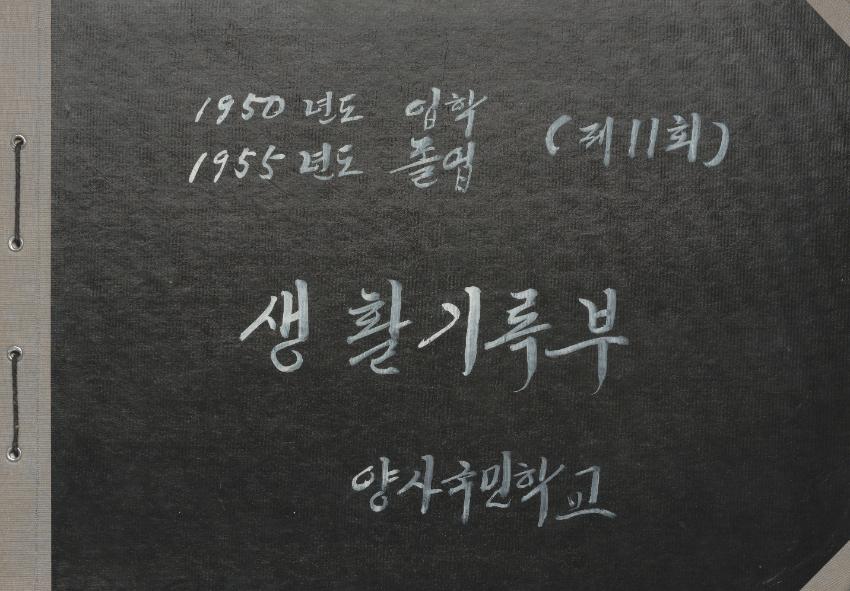 1950년도 입학
1955년도 졸업 (제11회)
생활기록부
양사국민학교